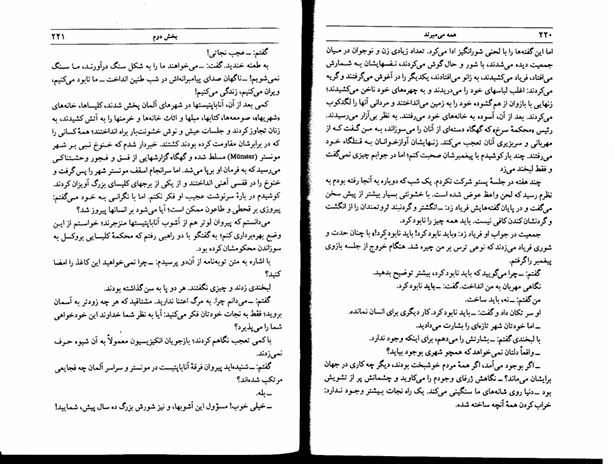 ۲۲۰ همه می‌میرند
اما این گفته‌ها را با لحنی شورانگیز ادا می‌کرد. تعداد زیادی زن و نوجوان در میان
جمعیت دیده می‌شدند، با شور و حال گوش می‌کردند، نفسهایشان به شمارش
می‌افتاد، فریاد می‌کشیدند، به زانو می‌افتادند، یکدیگر را در آغوش می‌گرفتند و گریه
می‌کردند. اغلب لباسهای خود را می‌دریدند و به چهره‌های خود ناخن می‌کشیدند؛
زنهایی با بازوان از هم گشوده خود را به زمین می‌انداختند و مردانی آنها را لگدکوب
می‌کردند. بعد از آن، آسوده به خانه‌های خود می‌رفتند. به نظر بی‌آزار می‌رسیدند.
رئیس محکمهٔ سرخ، که گهگاه دسته‌ای از آنان را می‌سوزاند، به من گفت که از
مهربانی و سربزیری آنان تعجب می‌کند. زنهایشان آوازخوانان به قتلگاه خود
می‌رفتند. چند بار کوشیدم با پیغمبرشان صحبت کنم؛ اما در جوابم چیزی نمی‌گفت
و فقط لبخند می‌زد
چند هفته در جلسهٔ پستو شرکت نکردم. یک شب که دوباره به آنجا رفته بودم به
نظرم رسید که لحن واعظ عوض شده است. با خشونتی بسیار بیشتر از پیش سخن
می‌گفت و در پایان گفته‌هایش فریاد زد: ــ انگشتر و گردنبند ثروتمندان را از انگشت
و گردنشان کندن کافی نیست. باید همه چیز را نابود کرد.
جمعیت در جواب او فریاد زد: «باید نابود کرد! باید نابود کرد!» با چنان حدت و
شوری فریاد می‌زدند که نوعی ترس بر من چیره شد. هنگام خروج از جلسه بازوی
پیغمبر را گرفتم.
گفتم: ــ چرا می‌گویید که باید نابود کرد، بیشتر توضیح بدهید.
نگاهی مهربان به من انداخت. گفت: ــ باید نابود کرد.
من گفتم: ــ نه، باید ساخت.
او سر تکان داد و گفت: ــ باید نابود کرد. کار دیگری برای انسان نمانده.
ــ اما خودتان شهر تازه‌ای را بشارت می‌دادید.
با لبخندی گفت: ــ بشارتش را می‌دهم، برای اینکه وجود ندارد.
ــ واقعاً دلتان نمی‌خواهد که همچو شهری بوجود بیاید؟
ــ اگر بوجود می‌آمد، اگر همهٔ مردم خوشبخت بودند، دیگر چه کاری در جهان
برایشان می‌ماند؟ ــ نگاهش ژرفای وجودم را می‌کاوید و چشمانش پر از تشویش
بود ــ دنیا روی شانه‌های ما سنگینی می‌کند. یک راه نجات بیشتر وجود ندارد:
خراب کردن همهٔ آنچه ساخته شده.
بخش دوم ۲۲۱
گفتم: ــ عجب نجاتی!
به طعنه خندید. گفت: ــ می‌خواهند ما را به شکل سنگ درآورند، ما سنگ
نمی‌شویم! ــ ناگهان صدای پیامبرانه‌اش در شب طنین انداخت ــ ما نابود می‌کنیم،
ویران می‌کنیم، زندگی می‌کنیم!
کمی بعد از آن، آناباپتیستها در شهرهای آلمان پخش شدند، کلیساها، خانه‌های
شهریها، صومعه‌ها، کتابها، مبلها و اثاث خانه‌ها و خرمنها را به آتش کشیدند، به
زنان تجاوز کردند و جلسات عیش و نوش خشونت‌بار راه انداختند؛ همهٔ کسانی را
که در برابرشان مقاومت کرده بودند کشتند. خبردار شدم که خنوخ نبی بر شهر
مونستر (Münster) مسلط شده و گهگاه گزارشهایی از فسق و فجور وحشتناکی
می‌رسید که به فرمان او برپا می‌شد. اما سرانجام اسقف مونستر شهر را پس گرفت و
خنوخ را در قفسی آهنی انداختند و از یکی از برجهای کلیسای بزرگ آویزان کردند.
کوشیدم در بارهٔ سرنوشت عجیب او فکر نکنم. اما با نگرانی به خود می‌گفتم:
پیروزی بر قحطی و طاعون ممکن است؛ آیا می‌شود بر انسانها پیروز شد؟
می‌دانستم که پیروان لوتر هم از آشوب آناباپتیستها منزجرند؛ خواستم از این
وضع بهره‌برداری کنم؛ به گفتگو با دو راهبی رفتم که محکمهٔ کلیسایی بروکسل به
سوزاندن محکومشان کرده بود.
با اشاره به متن توبه‌نامه از آن‌دو پرسیدم: ــ چرا نمی‌خواهید این کاغذ را امضا
کنید؟
لبخندی زدند و چیزی نگفتند. هر دو پا به سن گذاشته بودند.
گفتم: ــ می‌دانم چرا. به مرگ اعتنا ندارید. مشتاقید که هر چه زودتر به آسمان
بروید؛ فقط به نجات خودتان فکر می‌کنید. آیا به نظر شما خداوند این خودخواهی
شما را می‌پذیرد؟
با کمی تعجب نگاهم کردند؛ بازجویان انکیزیسیون معمولاً به آن شیوه حرف
نمی‌زدند.
گفتم: ــ شنیده‌اید پیروان فرقهٔ آناباپتیست در مونستر و سراسر آلمان چه فجایعی
مرتکب شده‌اند؟
ــ بله.
ــ خیلی خوب! مسؤول این آشوبها، و نیز شورش بزرگ ده سال پیش، شمایید!